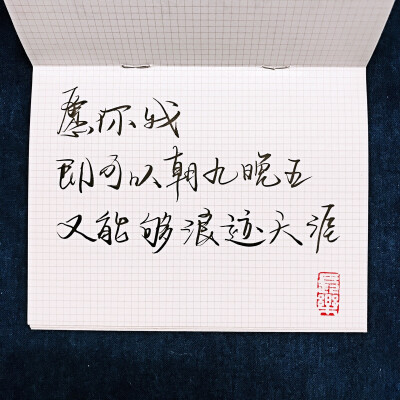 愿你我
即可以朝九晚五
又能够浪迹天涯